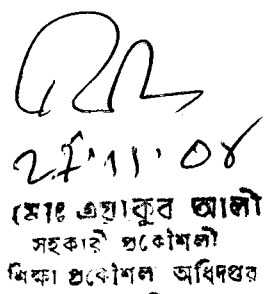 ২৭.১১.০৪
মোঃ এয়াকুব আলী
সহকারী প্রকৌশলী
শিক্ষা প্রকৌশল অধিদপ্তর